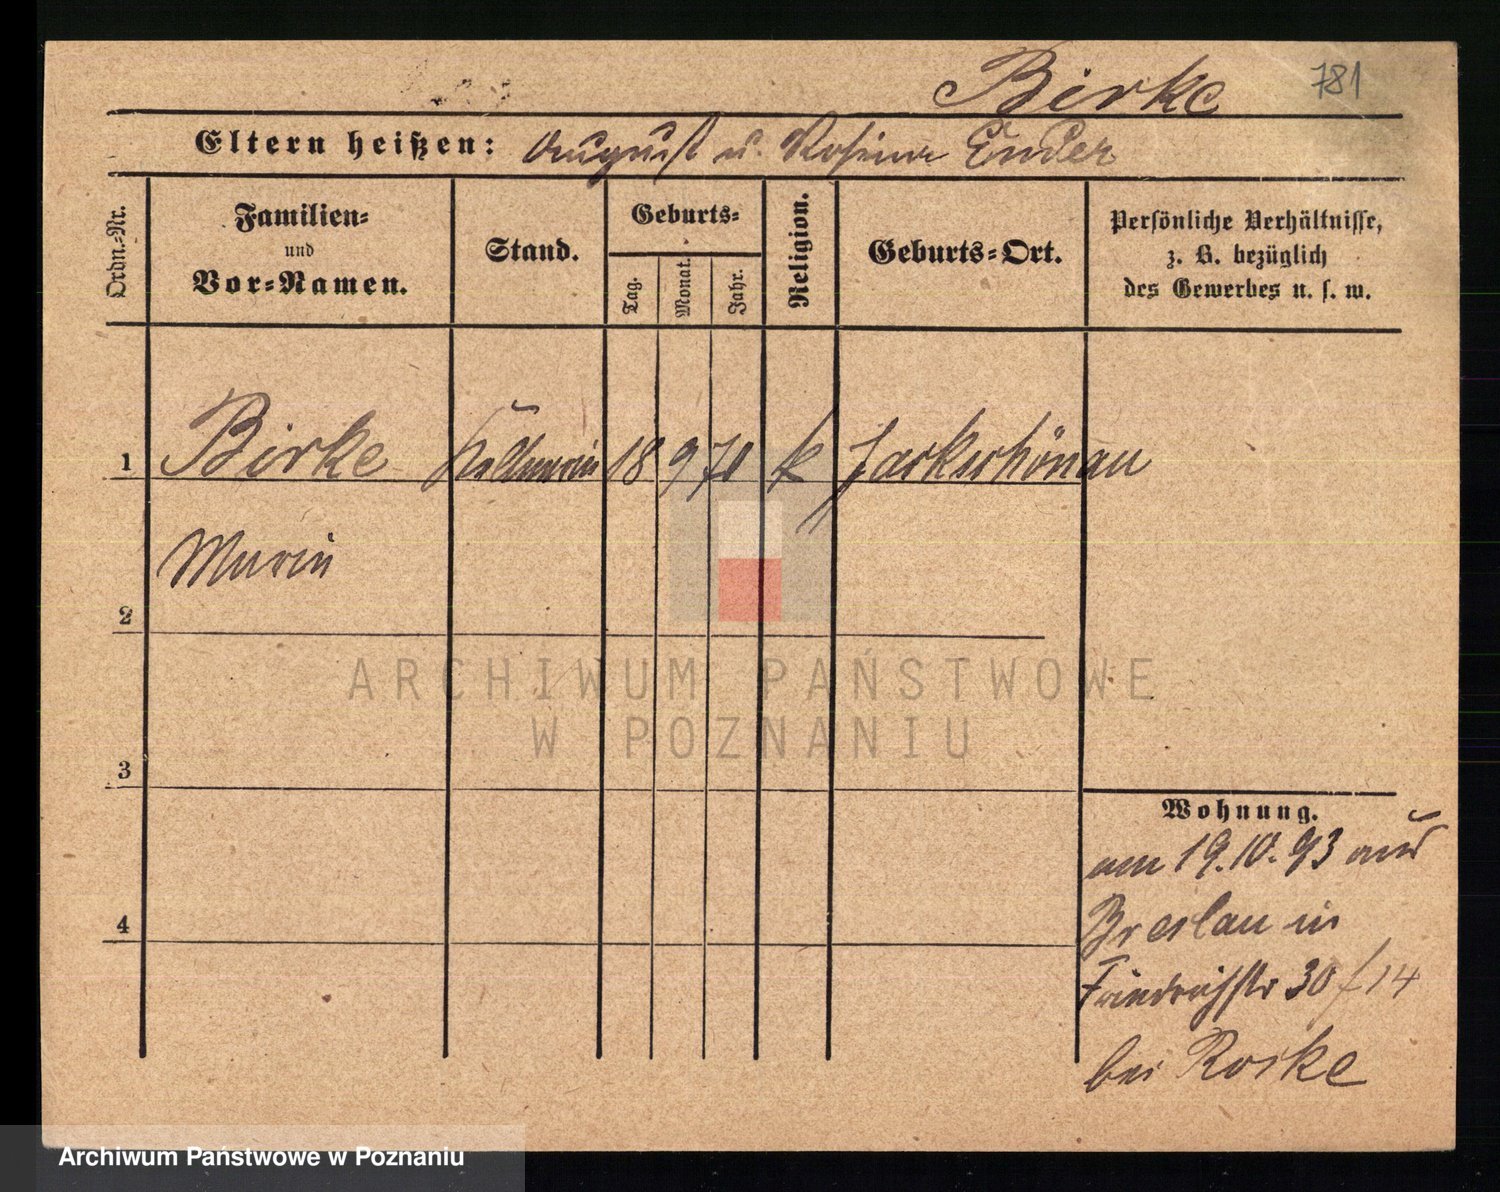 Birke 781
Eltern heißen: August u. Rosina Ender
Ordn.-Nr.
Familien-
und
Vor-Namen.
Stand.
Geburts-
Tag.
Monat.
Jahr.
Religion.
Geburts-Ort.
Persönliche Verhältnisse,
z. B. bezüglich
des Gewerbes u. s. w.
1 Birke Kellnerin 18 9 70 k
Maria
2
3
4
ARCHIWUM PAŃSTWOWE
W POZNANIU
Wohnung.
am 19.10.93 aus
Breslau in
Friedrichstr 30 / 14
bei Roske
Archiwum Państwowe w Poznaniu